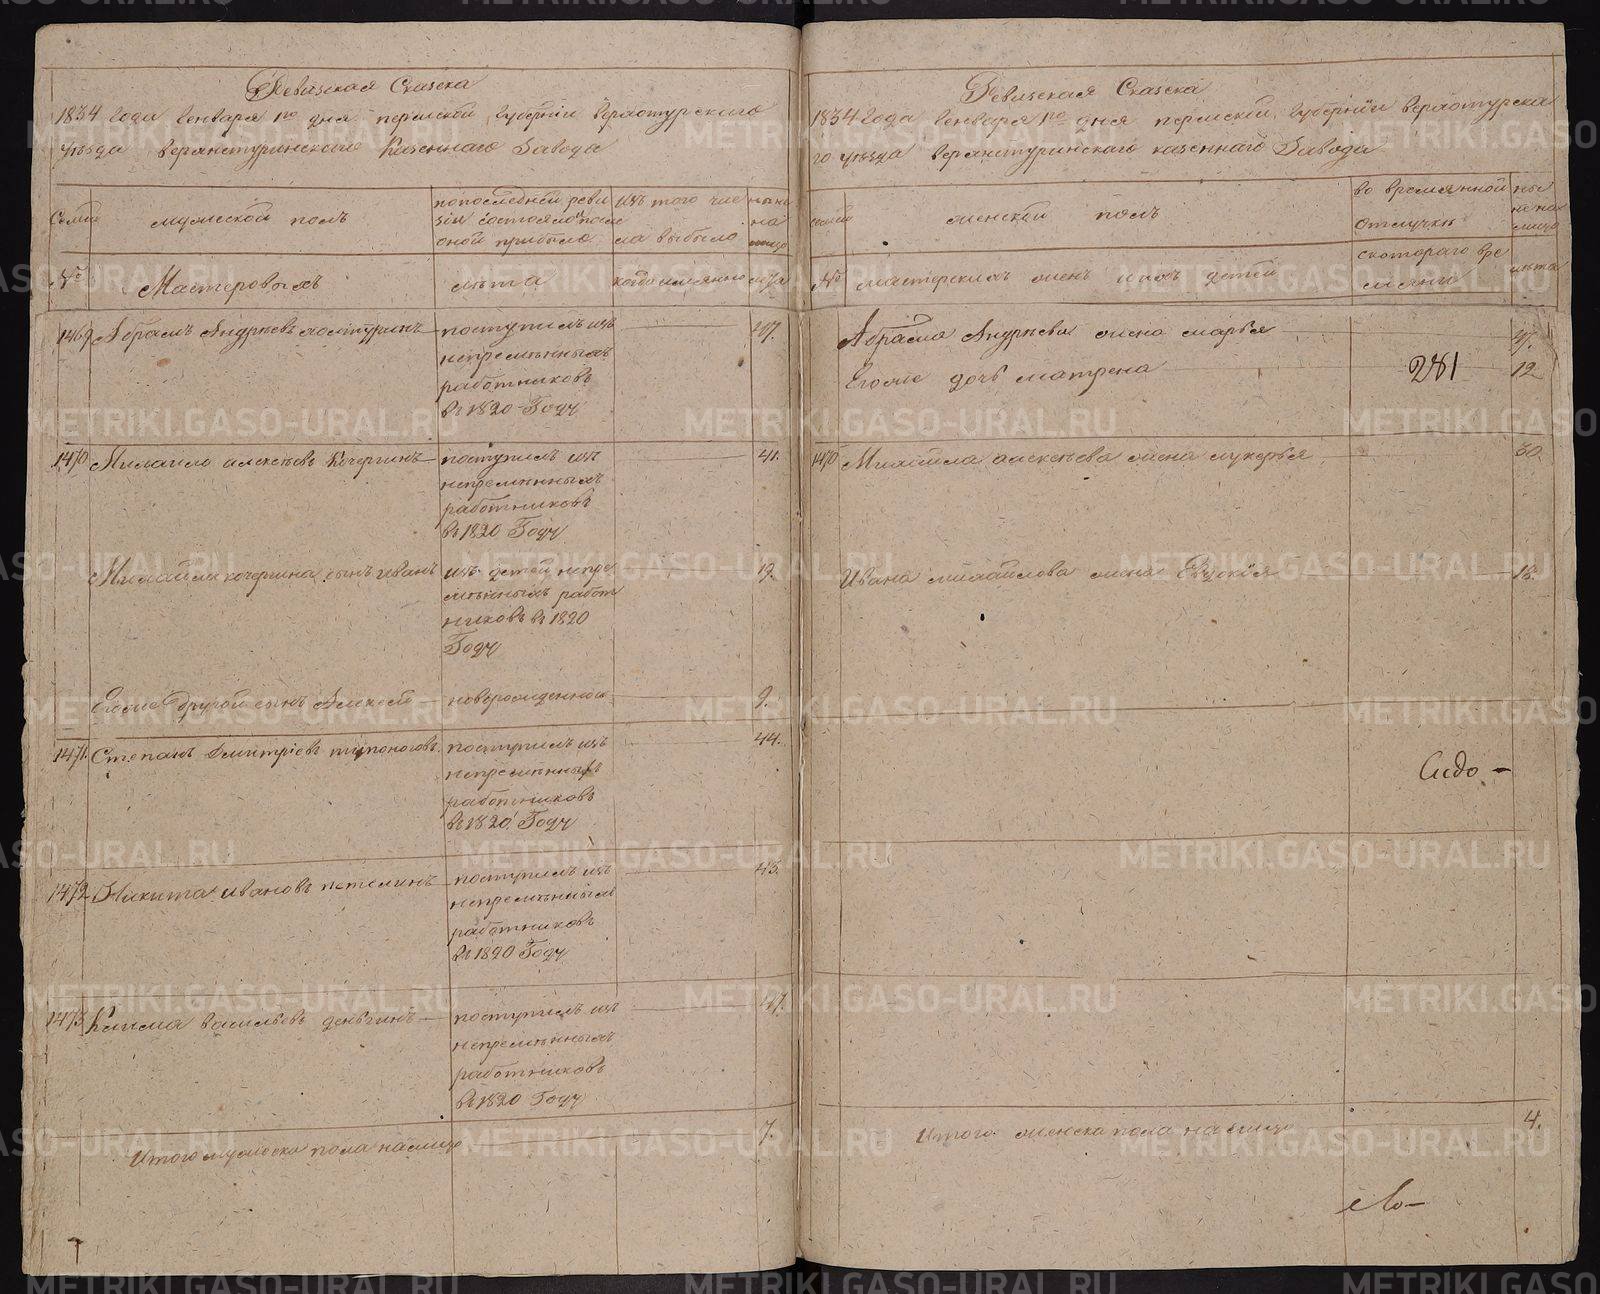 Ревизская Сказка
1834 Года Генваря 1го дня пермской Губернии верхотурского
уезда верхнетуринского Казенного Завода
Семьи
мужеской полъ
попоследней реви
зiи состояло ипосле
оной прибыло
изъ того чис
ла выбыло
ныне
на
лицо
№
Мастеровыхъ
лѣта
когда имянно
лѣта
1469 Абрамъ Андрѣевъ
поступилъ изъ
непремѣнныхъ
работниковъ
въ 1820 Году
47.
1470 Михайло алексѣевъ Кочергинъ
поступилъ изъ
непремѣнныхъ
работниковъ
въ 1820 Году
41.
Михайла кочергина сынъ Иванъ
изъ детей непре
мѣнныхъ работ
никовъ въ 1820
Году
19.
Егоже другой сынъ Алексей
новорожденной
9.
1471. Степанъ дмитрiевъ
поступилъ изъ
непремѣнныхъ
работниковъ
въ 1820 Году
44.
1472 Никита ивановъ петелинъ
поступилъ изъ
непремѣнныхъ
работниковъ
въ 1820 Году
45.
1473 Клима васильевъ деньгинъ
поступилъ изъ
непремѣнныхъ
работниковъ
въ 1820 Году
47.
Итого мужеска пола налицо
7.
Ревизская Сказка
1834 Года Генваря 1го дня пермской Губернiи верхотурска
го уезда верхнетуринскаго казеннаго Завода
семьи
женскiй полъ
во временной
отлучкѣ
ны
не на
лицо
№
мастерскихъ женъ ихъ детей
скотораго вре
мяни
лѣта
Абрама Андрѣева жена марья
47.
Егоже дочь матрена
12
281
1470 Михайла алексѣева жена лукерья
30
Ивана михайлова жена Евдокiя
18.
Итого женска пола налицо
4.
METRIKI.GASO-URAL.RU